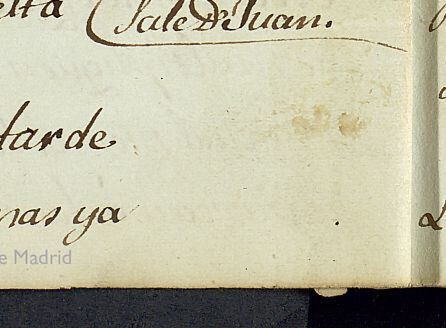 elta (Sale Dn Juan.
tarde
nas ya
e Madrid